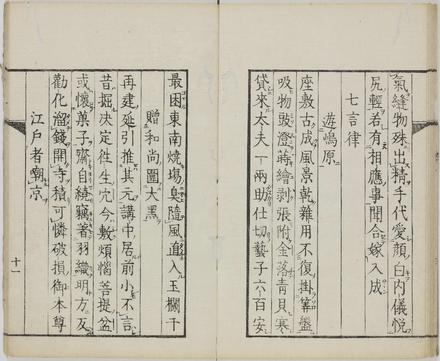 氣縫物殊出精手代愛顏曰內儀悅
尻輕若有相應事聞合嫁入成
七言律
遊嶋原
座敷古成風景乾雜用不復掛筭盤
吸物豉澄蒔繪剥張附金落靑貝寒
貸來太夫一兩助仕切藝子六百安
最困東南燒場臭隨風入玉欄干
贈和尚圖大黑
再建延引推其元講中居前小不言
昔掘決定徃生穴今敷煩惱菩提盆
或懷菓子齋自繞竊著羽織明方反
勸化溜錢開寺積可憐破損御本尊
江戸者朝京
十一